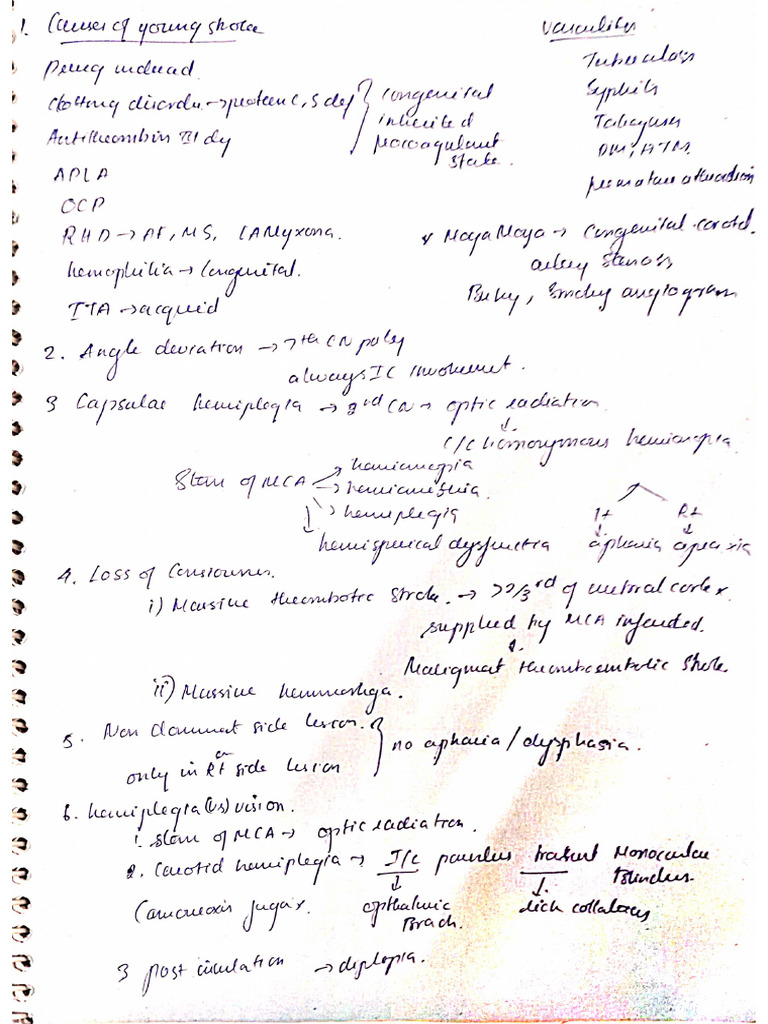 1. Causes of young stroke
Drug induced.
Clotting disorder → protein C, S defy } Congenital
Antithrombin III dy inherited
Procoagulant
State.
APLA
OCP
RHD → AF, MS, LA Myxoma.
hemophilia → Congenital.
ITA → acquid
Vasculitis
Tuberculosis
Syphilis
Takayasu
DM, HTN.
premature
* MoyaMoya → Congenital carotid
artery stenosis
Puky, Smoky angiogram
2. Angle deviation → 7th CN palsy
always IC involvement.
3 Capsular hemiplegia → 2nd CN → optic radiation
↓
C/C homonymous hemianopia.
Stem of MCA → hemianopia
→ hemianesthia.
→ hemiplegia
↓ hemisperical dysfunctn
lt Rt
↓ ↓
aphasia apraxia
4. Loss of Consciousness.
i) Massive thrombotic stroke. → >2/3rd of cortex
supplied by MCA infarcted.
↓
Malignant thromboembolic stroke.
ii) Massive hemmorhga.
5. Non dominant side lesion. } no aphasia / dysphasia.
or
only in Rt side lesion
6. hemiplegia (vs) vision.
1. Stem of MCA → optic radiation.
2. Carotid hemiplegia → I/C transient Monocular
Blindness.
↓ ↓
Amaurosis fugax. opthalmic rich collaterals
Brach.
3 post circulation → diplopia.